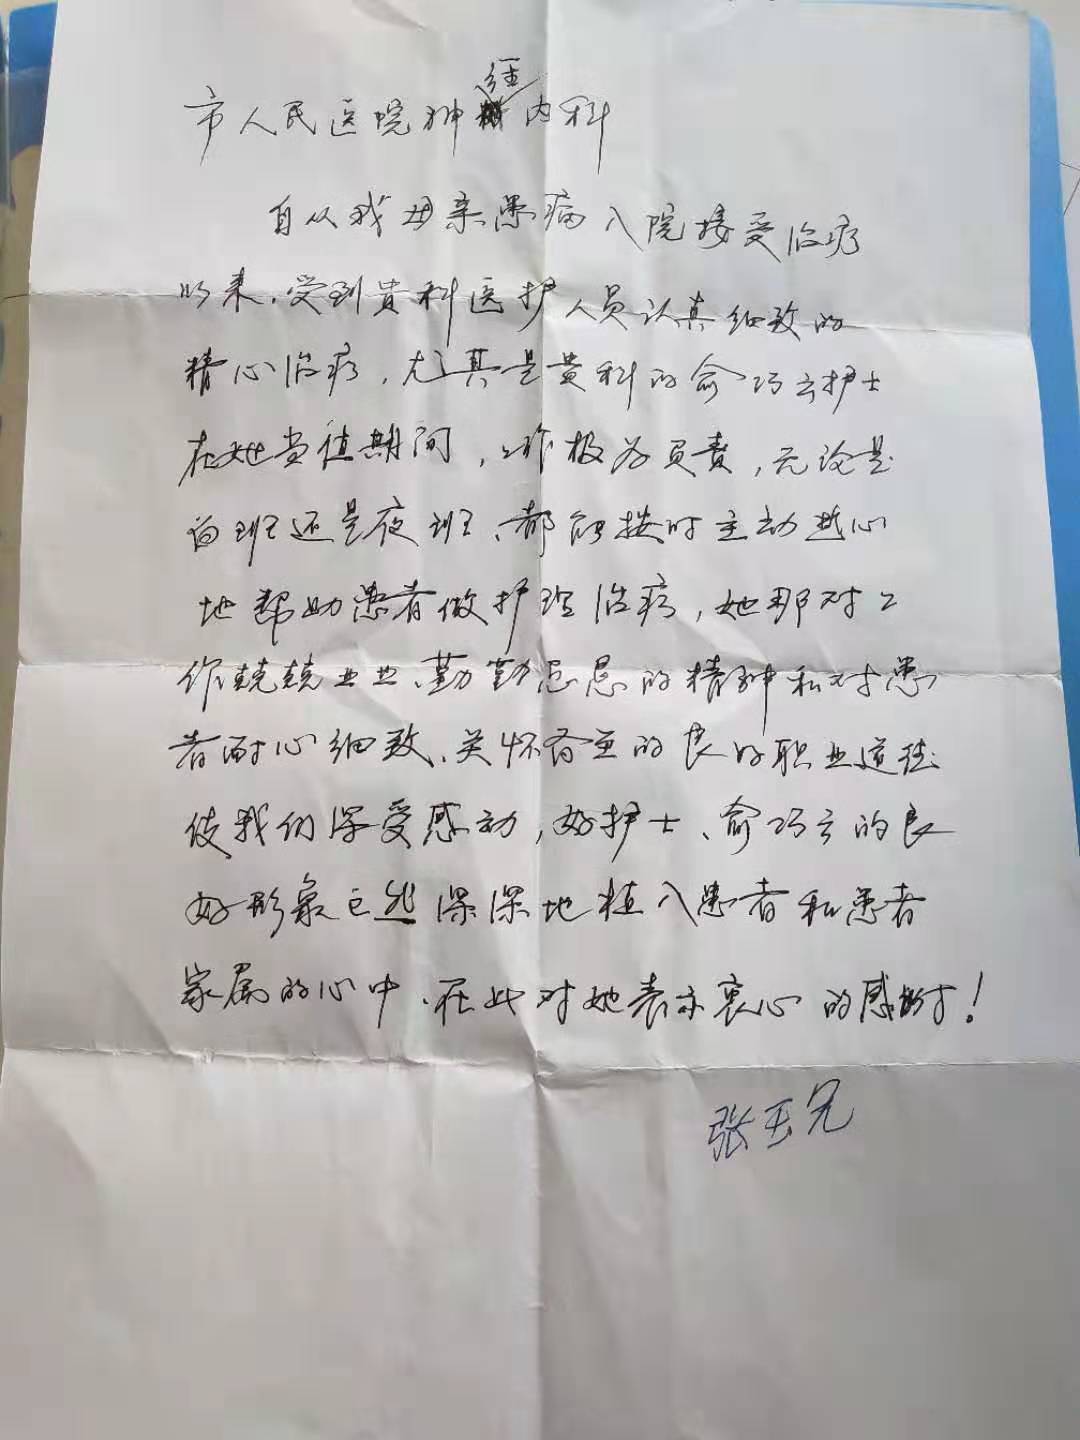 市人民医院神经内科
自从我母亲患病入院接受治疗
以来,受到贵科医护人员认真细致的
精心治疗,尤其是贵科的俞巧云护士
在她当值期间,工作极为负责,无论是
白班还是夜班、都能按时主动热心
地帮助患者做护理治疗,她那对工
作兢兢业业、勤勤恳恳的精神和对患
者耐心细致、关怀备至的良好职业道德
使我们深受感动,好护士、俞巧云的良
好形象已然深深地植入患者和患者
家属的心中、在此对她表示衷心的感谢!
张玉兄